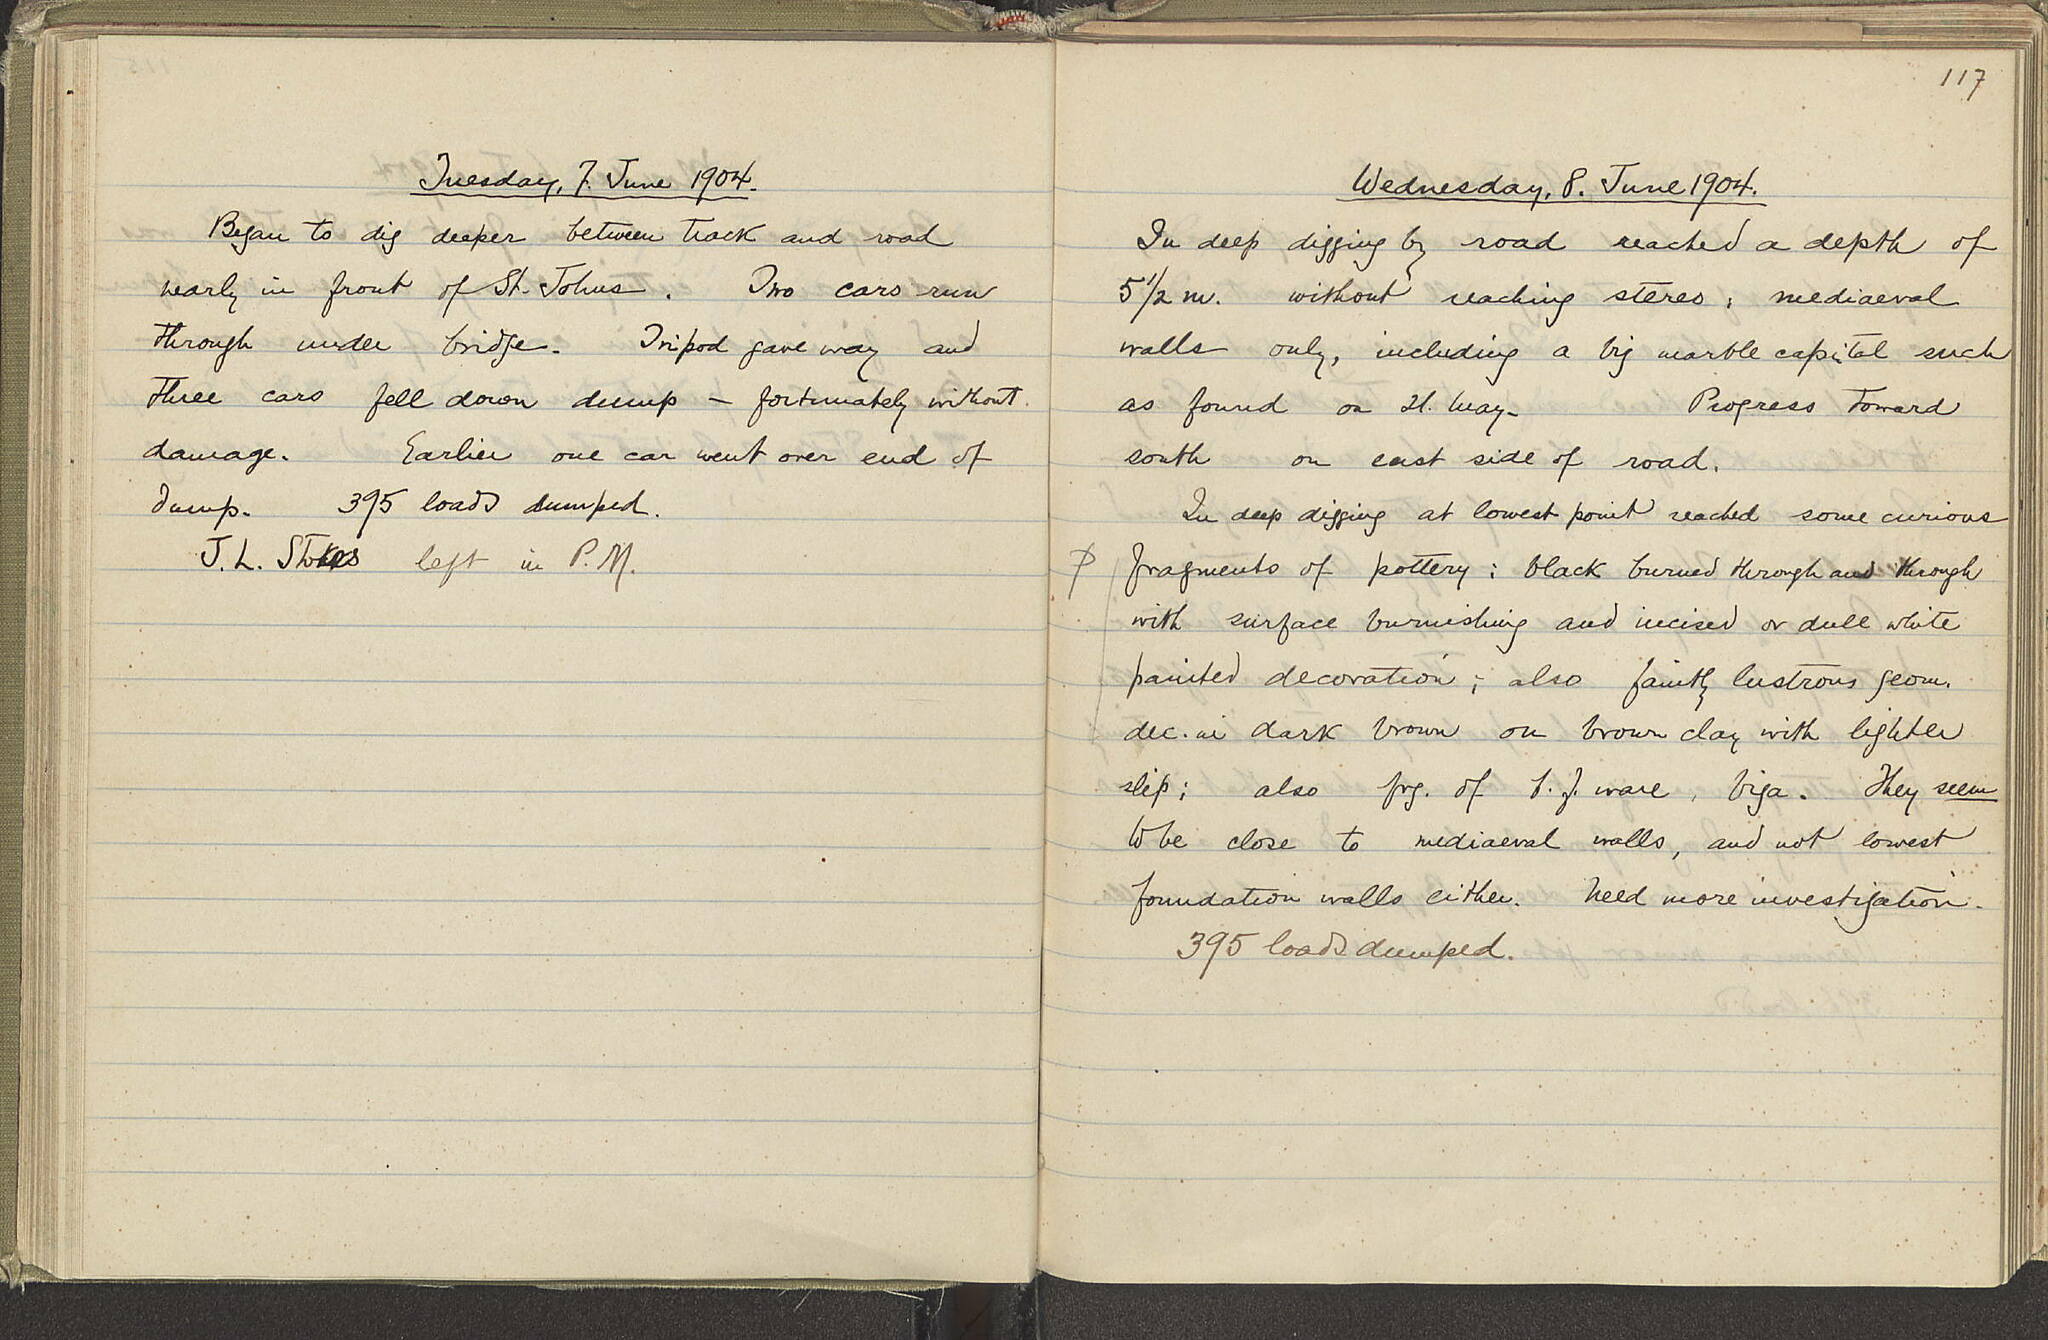 Tuesday, 7. June 1904.
Began to dig deeper between track and road
nearly in front of St. Johns. Two cars run
through under bridge. Tripod gave way and
three cars fell down dump – fortunately without
damage. Earlier one car went over end of
dump. 395 loads dumped.
J. L. Stokes left in P. M.
117
Wednesday, 8. June 1904.
In deep digging by road reached a depth of
5 1/2 m. without reaching stereo; mediaeval
walls only, including a big marble capital such
as found on 21. May. Progress toward
south on east side of road.
In deep digging at lowest point reached some curious
fragments of pottery: black burned through and through
with surface burnishing and incised or dull white
painted decoration; also faintly lustrous geom.
dec. in dark brown on brown clay with lighter
slip; also frg. of ware, biga. They seem
to be close to mediaeval walls, and not lowest
foundation walls either. Need more investigation.
395 loads dumped.